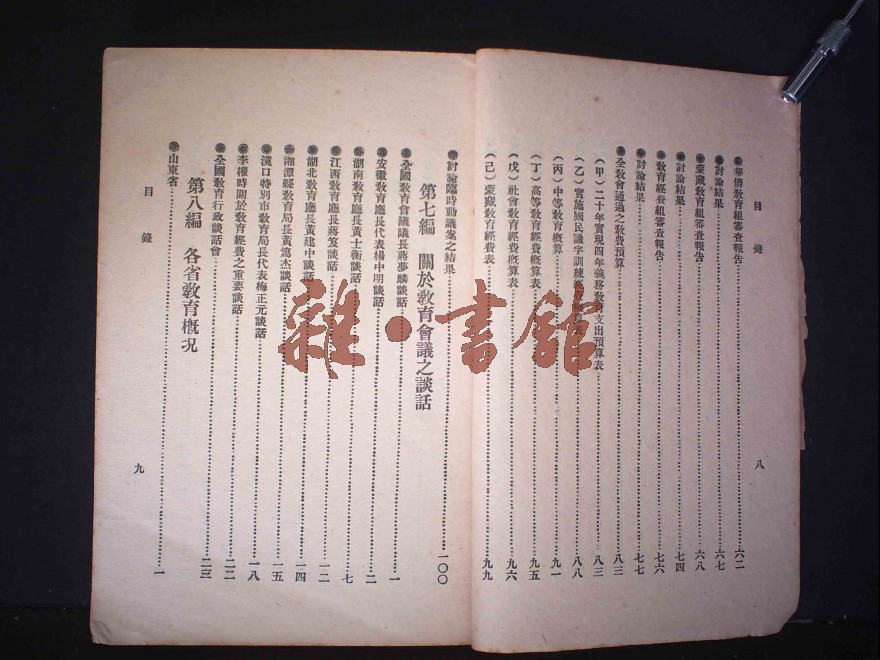 目錄
八
華僑敎育組審查報告 六二
討論結果 六七
蒙藏敎育組審查報告 六八
討論結果 七四
敎育經費組審查報告 七六
討論結果 七七
全敎會通過之敎費預算 八三
(甲)二十年實現四年義務敎育支出預算表 八三
(乙)實施國民識字訓練 八八
(丙)中等敎育槪算 九一
(丁)高等敎育經費槪算表 九五
(戊)社會敎育經費槪算表 九六
(己)蒙藏敎育經費表 九九
討論臨時動議案之結果 一〇〇
第七編 關於敎育會議之談話
全國敎育會議議長蔣夢麟談話 一
安徽敎育廳長代表楊中明談話 二
湖南敎育廳長黃士衡談話 七
江西敎育廳長蔣笈談話 一二
湖北敎育廳長黃建中談話 一四
湘潭縣敎育局長黃篤杰談話 一五
漢口特別市敎育局長代表梅正元談話 一八
李權時關於敎育經費之重要談話 二二
全國敎育行政談話會 二三
第八編 各省敎育槪況
山東省 一
目錄
九
雜·書館